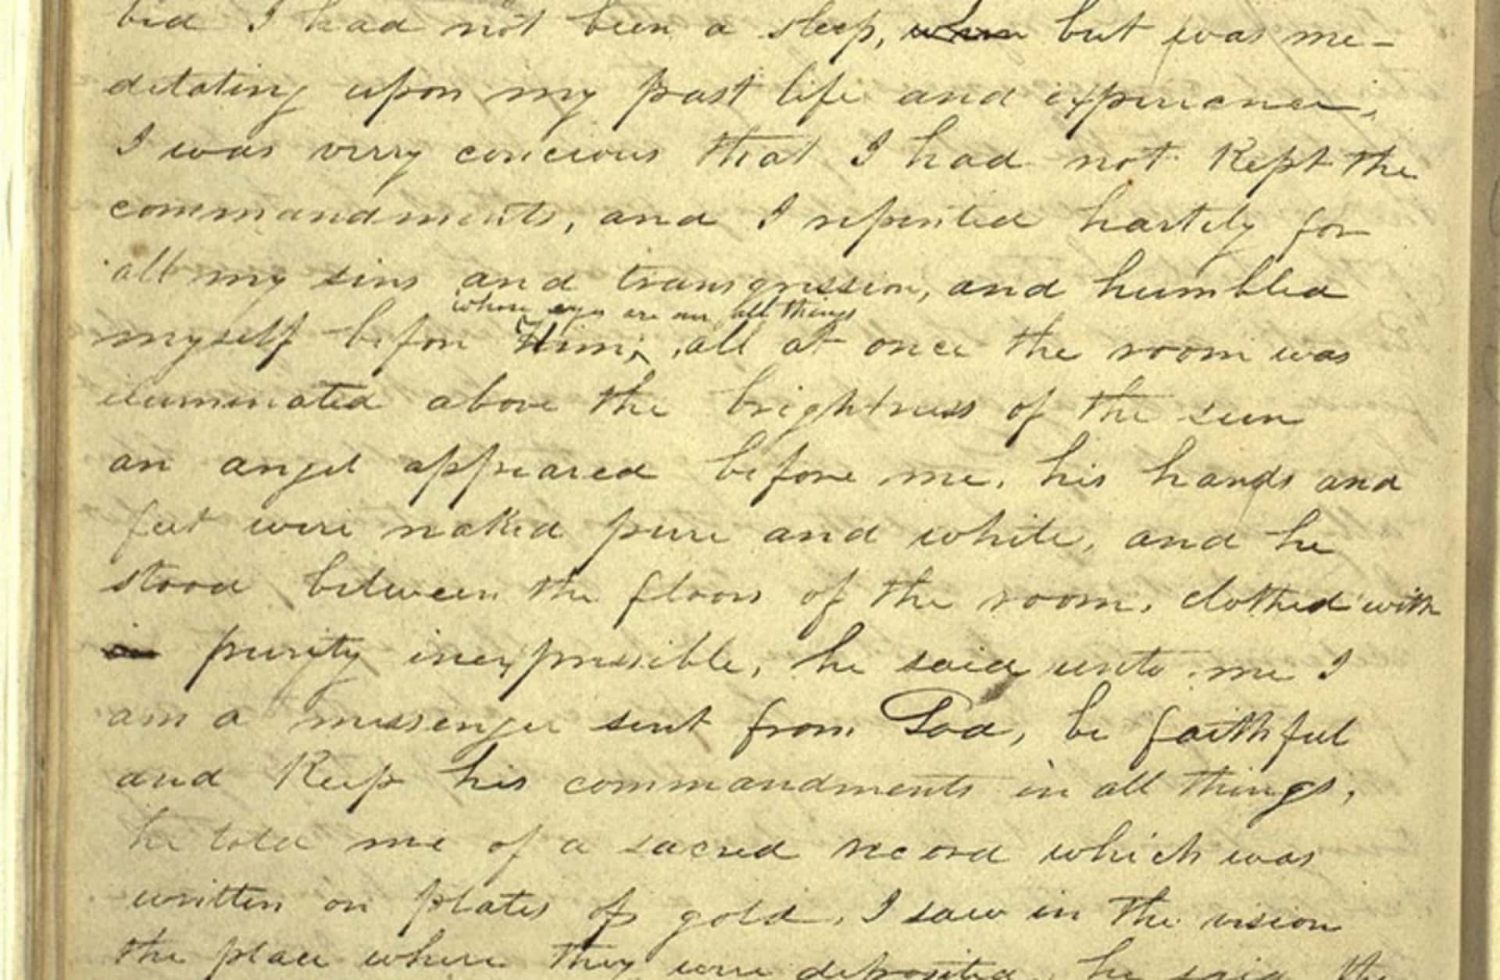 bed I had not been a sleep, when but was me-
ditating upon my past life and experience,
I was very concious that I had not kept the
commandments, and I repented hartily for
all my sins and transgression, and humbled
whose eyes are over all things
myself before Him; , all at once the room was
iluminated above the brightness of the sun
an angel appeared before me, his hands and
feet were naked pure and white, and he
stood between the floors of the room, clothed with
in purity inexpressible, he said unto me I
am a messenger sent from God, be faithful
and keep his commandments in all things,
he told me of a sacred record which was
written on plates of gold, I saw in the vision
the place where they were deposited, he said the